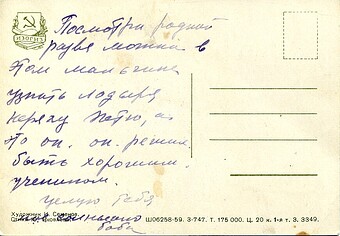 ИЗОГИЗ
Посмотри родной
разве можно в
этом мальчике
узнать лодыря
неряху Петю, а
то он. он. решил
быть хорошим.
учеником.
целую тебя
твоя
баба
Художник И. Семёнов
Ш06258-59. 3-747. Т. 175 000. Ц. 20 к. 1-я т. З. 3349.